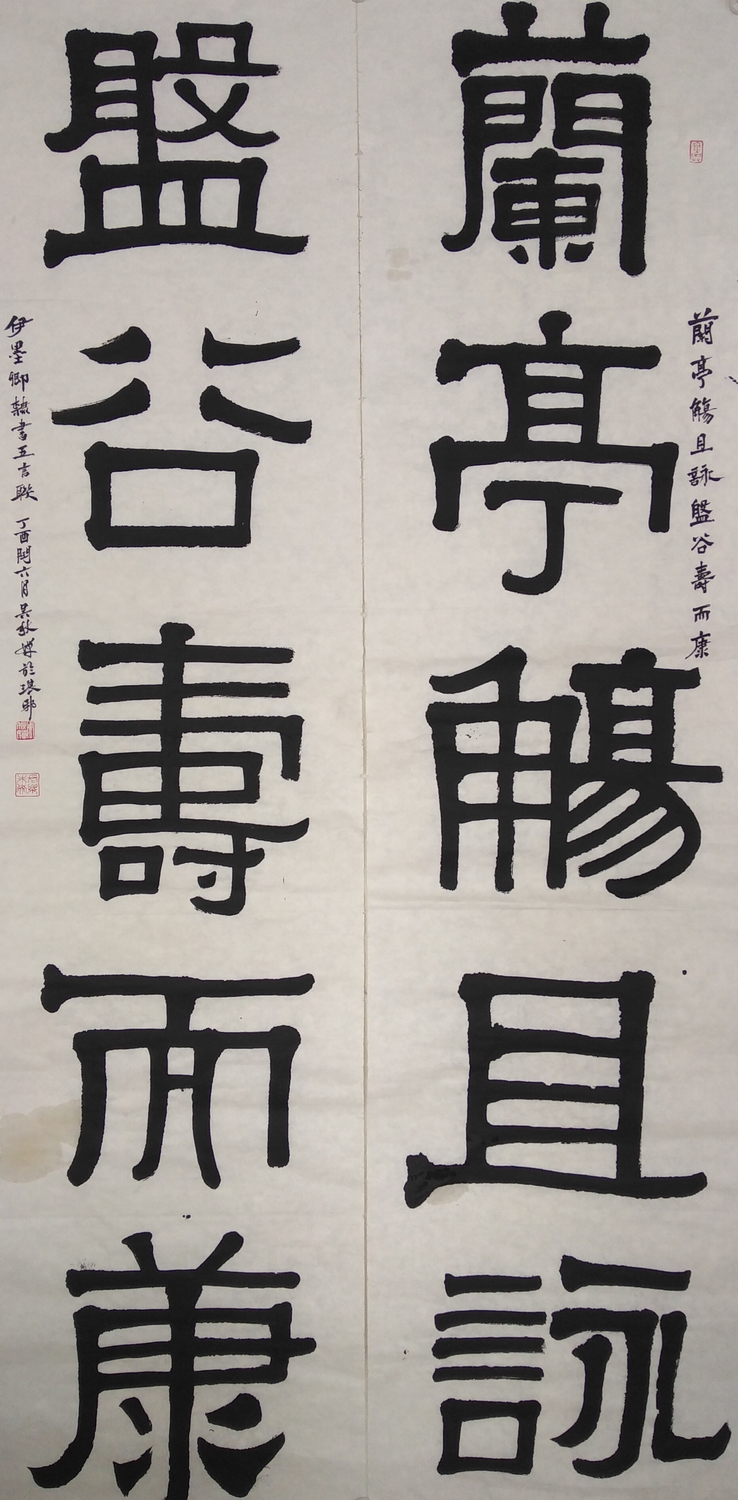 蘭亭觴且詠盤谷壽而康
蘭亭觴且詠
盤谷壽而康
伊墨卿隸書五言聯 丁酉閏六月吳秋 於琅邪